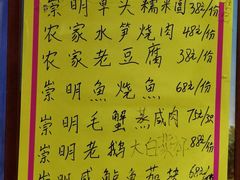 崇明草头糯米圆 38元/份
农家水笋烧肉 48元/份
农家老豆腐 38元/份
崇明魚烧魚 68元/份
崇明毛蟹蒸咸肉 75元/
崇明老鹅大白菜 88元/份
崇明咸 魚 68元/